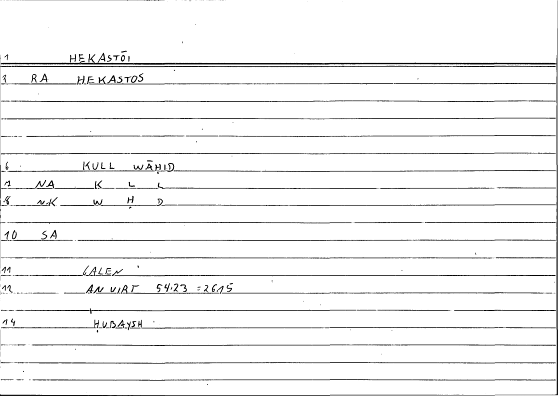 1 HEKASTŌI
3 RA HEKASTOS
6 KULL WĀḤID
7 NA K L L
8 NK W Ḥ D
10 SA
11 GALEN
12 AN VIRT 54.23 = 2615
14 ḤUBAYSH